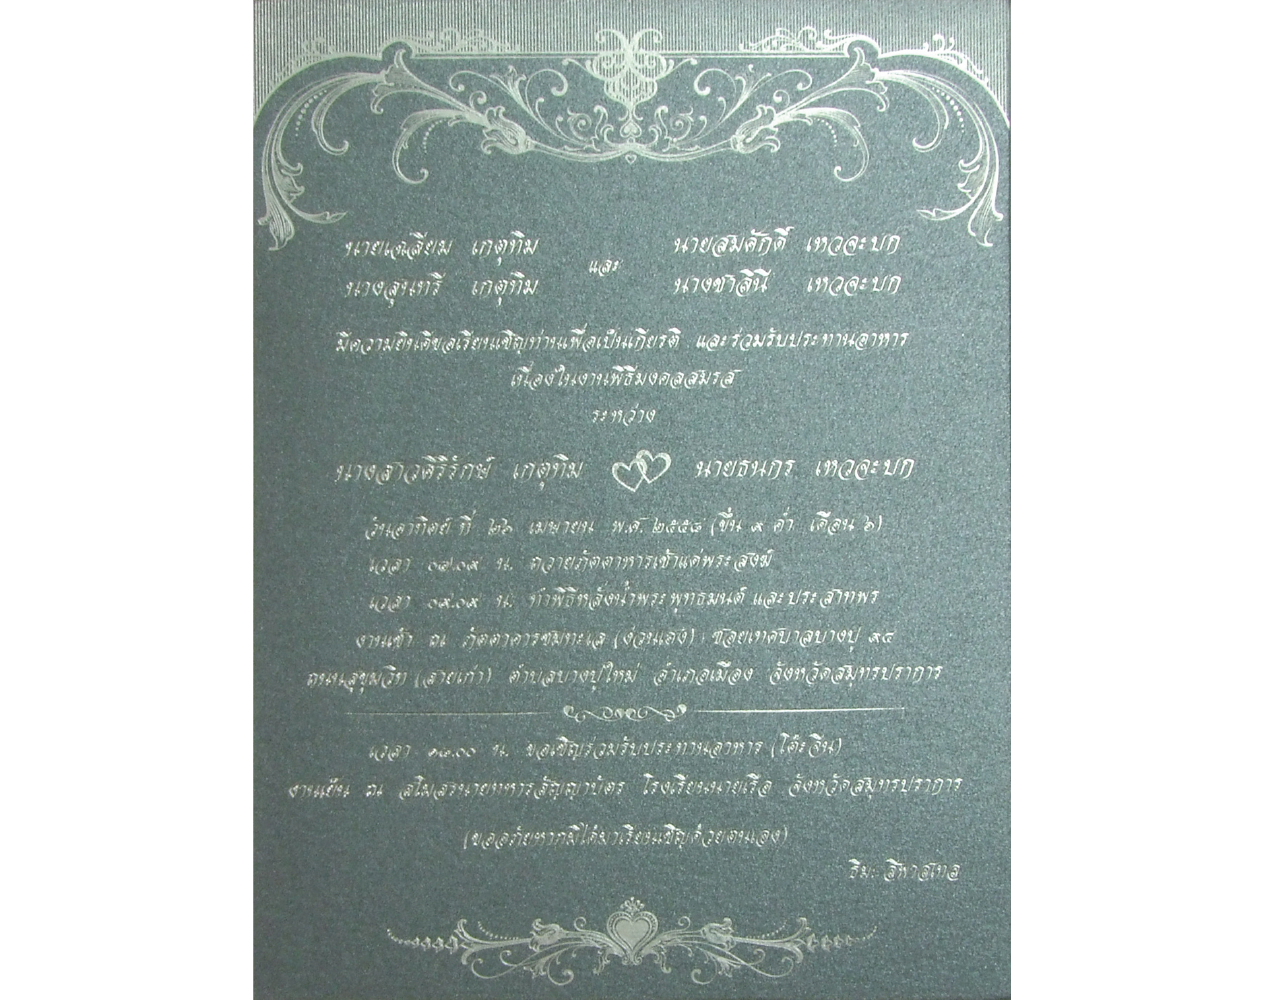 นายเฉลียม เกตุทิม และ นายสมศักดิ์ เหวจะบก
นางสุนทรี เกตุทิม นางชาลินี เหวจะบก
มีความยินดีขอเรียนเชิญท่านเพื่อเป็นเกียรติ และร่วมรับประทานอาหาร
เนื่องในงานพิธีมงคลสมรส
ระหว่าง
นางสาวศิริรักษ์ เกตุทิม นายธนกร เหวจะบก
วันอาทิตย์ ที่ ๒๖ เมษายน พ.ศ. ๒๕๕๘ (ขึ้น ๙ ค่ำ เดือน ๖)
เวลา ๐๗.๐๙ น. ถวายภัตตาหารเช้าแด่พระสงฆ์
เวลา ๐๙.๐๙ น. ทำพิธีหลั่งน้ำพระพุทธมนต์ และประสาทพร
งานเช้า ณ ภัตตาคารชมทะเล (ง่วนเฮง) ซอยเทศบาลบางปู ๙๕
ถนนสุขุมวิท (สายเก่า) ตำบลบางปูใหม่ อำเภอเมือง จังหวัดสมุทรปราการ
เวลา ๑๘.๐๐ น. ขอเชิญร่วมรับประทานอาหาร (โต๊ะจีน)
งานเย็น ณ สโมสรนายทหารสัญญาบัตร โรงเรียนนายเรือ จังหวัดสมุทรปราการ
(ขออภัยหากมิได้มาเรียนเชิญด้วยตนเอง)